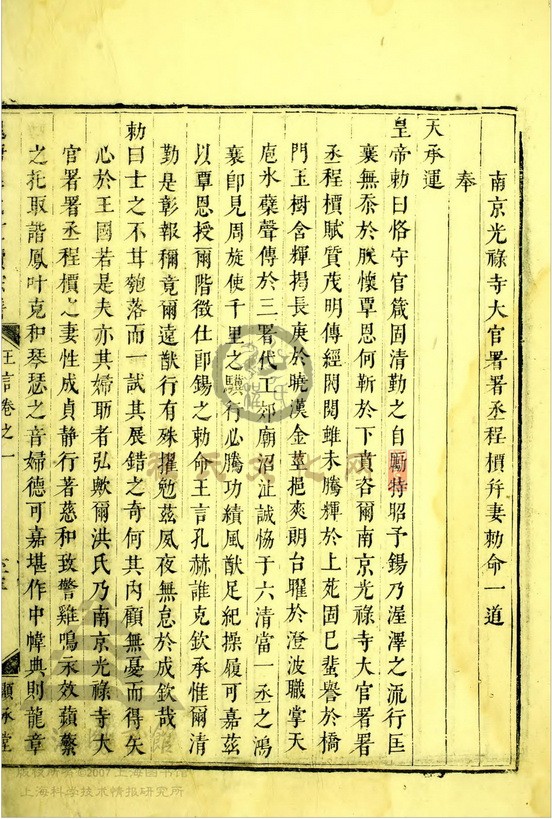 南京光祿寺大官署署丞程檟幷妻勅命一道
奉
天承運
皇帝勅曰恪守官箴固清勤之自勵特昭予錫乃渥澤之流行匡
襄無忝於朕懷覃恩何靳於下賁咨爾南京光祿寺大官署署
丞程檟賦質茂明傳經閎閱雖未騰輝於上苑固已蜚譽於橋
門玉樹含輝揭長庚於曉漢金莖挹爽朗台曜於澄波職掌天
庖氷櫱聲傳於三署代工郊廟沼沚誠恊于六清當一丞之鴻
襄卽見周旋使千里之驥行必騰功績風猷足紀操履可嘉茲
以覃恩授爾階徵仕郎錫之勅命王言孔赫誰克欽承惟爾清
勤是彰報稱竟爾遠猷行有殊擢勉茲夙夜無怠於成欽哉
勅曰士之不甘匏落而一試其展錯之奇何其內顧無憂而得矢
心於王國若是夫亦其婦助者弘歟爾洪氏乃南京光祿寺大
官署署丞程檟之妻性成貞靜行著慈和致警雞鳴永效蘋蘩
之托取諧鳳叶克和琴瑟之音婦德可嘉堪作中幃典則龍章
王言卷之一
顯承堂
版权所有©2007上海图书馆
上海科学技术情报研究所